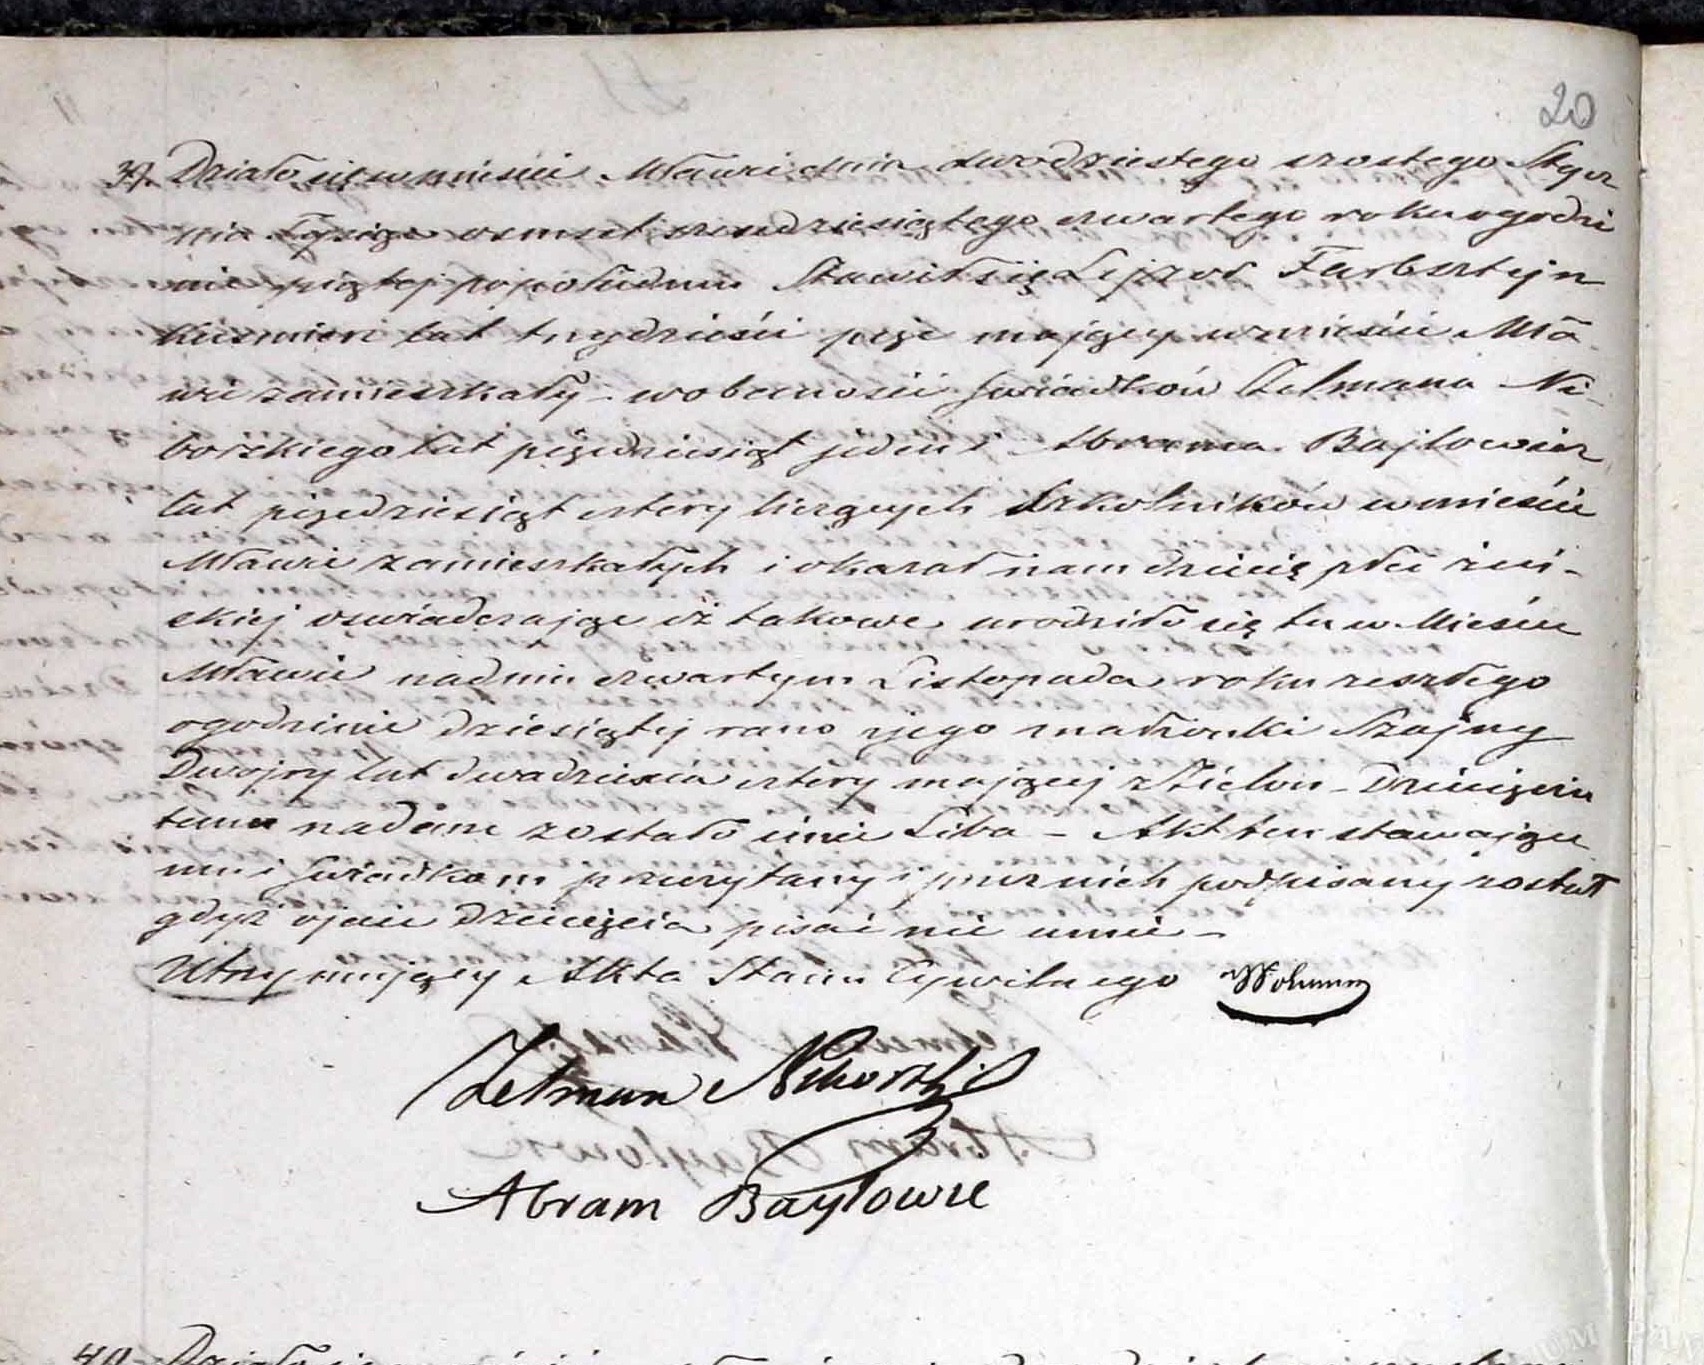 20
39. Działo się w mieście Mławie dnia dwudziestego szostego Stycz
nia Tysiąc osmset szesdziesiątego czwartego roku o godzi
nie piątej popołudniu Stawił się Lejzor Farbsztejn
Kusmierz lat trzydzieści pięć mający w mieście Mła-
wie zamieszkały - w obecności Swiadków Zelmana Ni-
borskiego lat pięćdziesiąt jeden i Abrama Bajtowicz
lat pięćdziesiąt cztery liczących Szkolników w mieście
Mławie zamieszkałych i okazał nam dziecię płci żeń-
skiej oswiadczając iż takowe urodziło się tu w Mieście
Mławie na dniu czwartym Listopada roku zeszłego
o godzinie dziesiątej rano z jego małżonki Szajny
Dwojry lat dwadzieścia cztery mającej z - Dziecięciu
temu nadane zostało imie Liba - Akt ten stawające
mu i Swiadkom przeczytany i przez nich podpisany został
gdyż ojciec Dziecięcia pisać nie umie -
Utrzymujący Akta Stanu Cywilnego
Zelman Niborski
Abram Baytowic
40 Działo się